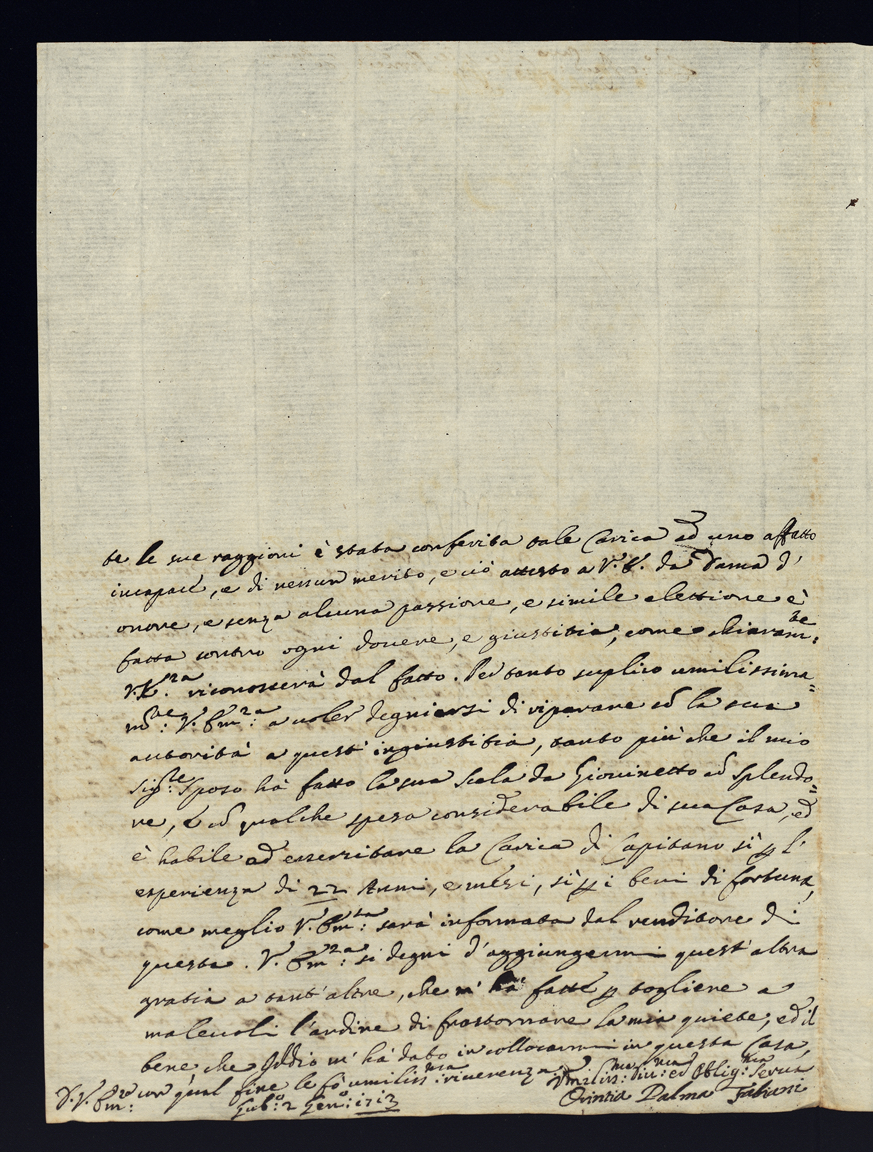 te le sue raggioni è stata conferita tale Carica ad uno affatto
incapace, e di nessun merito, e ciò attesto a V. E. da Dama d'
onore, e senza alcuna passione, e simile elettione è
fatta contro ogni douere, e giustitia, come chiaram:te
V. E.za riconoscerà dal fatto. Per tanto suplico umilissima=
m:te V. Em:za a uoler degniarsi di riparare cō la sua
autorità a quest' ingiustitia, tanto più che il mio
Sig:re Sposo hà fatto la sua Scala da Giouinetto cō splendo=
re, e cō qualche spesa considerabile di sua Casa, ed
è habile ad essercitare la Carica di Capitano sì p l'
esperienza di 22 Anni, e mesi, sì p i beni di fortuna,
come meglio V. Em:za sarà informata dal renditore di
questa. V. Em:za si degni d'aggiungermi quest' altra
gratia a tant' altre, che m' hà fatte p togliere a
maleuoli l'ardire di frastornare la mia quiete, ed il
bene che Iddio m' hà dato in collocarmi in questa Casa,
con qual fine le fò umiliss:ma riuerenza
D. V. Em:za
Gub:o 2 Gen:o 1713
Umiliss:ma Diu:ma ed Oblig:ma Serua
Orintia Dalma Fabiani